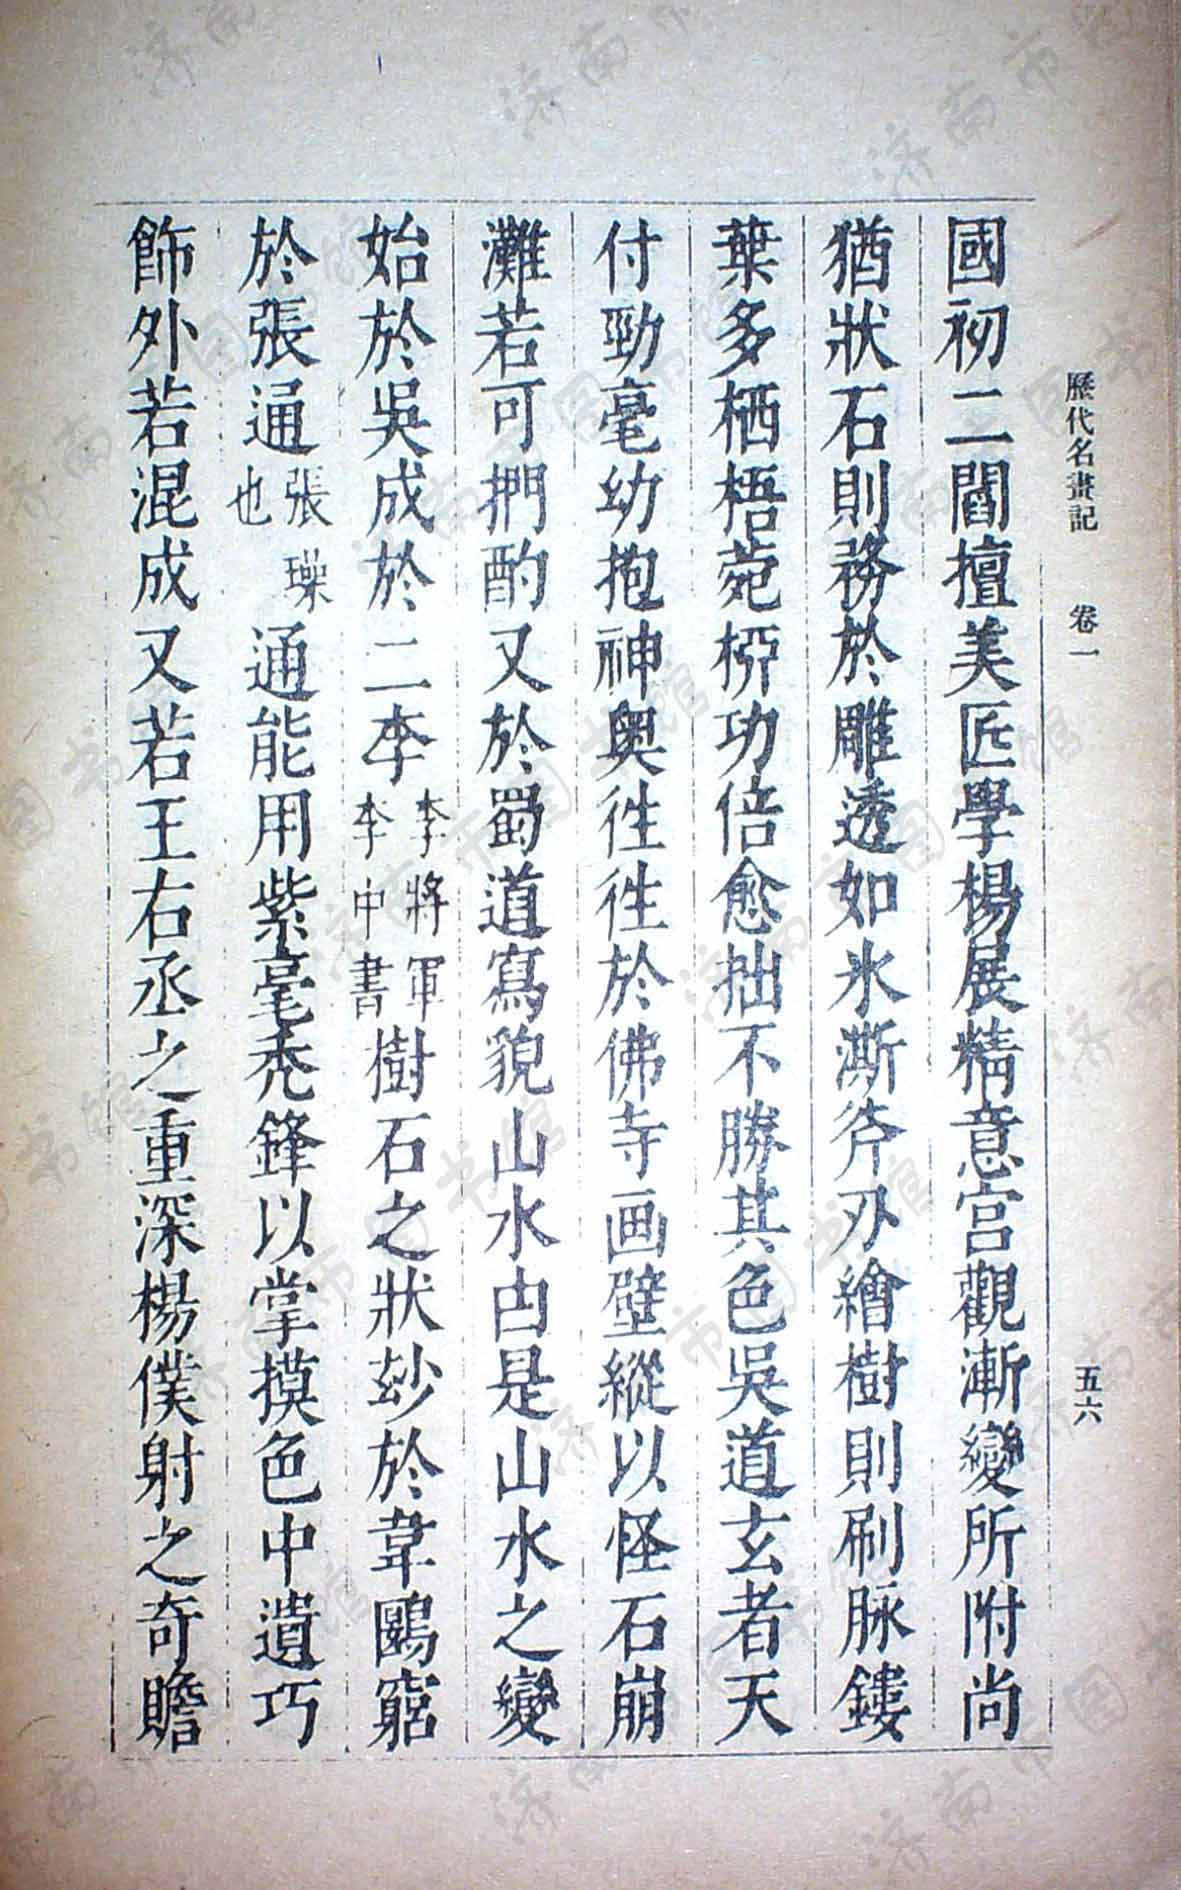 歷代名畫記 卷一 五六
國初二閻擅美匠學楊展精意宮觀漸變所附尚
猶狀石則務於雕透如氷澌斧刃繪樹則刷脉鏤
葉多栖梧菀柳功倍愈拙不勝其色吳道玄者天
付勁毫幼抱神奥徃徃於佛寺画壁縱以怪石崩
灘若可捫酌又於蜀道寫貌山水由是山水之變
始於吳成於二李李將軍李中書樹石之狀玅於韋鶠窮
於張通張璪也通能用紫毫秃鋒以掌摸色中遺巧
飾外若混成又若王右丞之重深楊僕射之奇贍
济南市图书馆